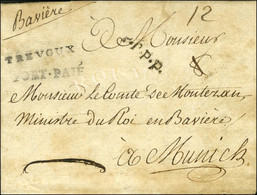 Bavière
12
TREVOUX
PORT-PAIÉ
A Monsieur
P.P.P.P.
Monsieur Le Comte De Montezan
Ministre du Roi en Bavière
à Munick